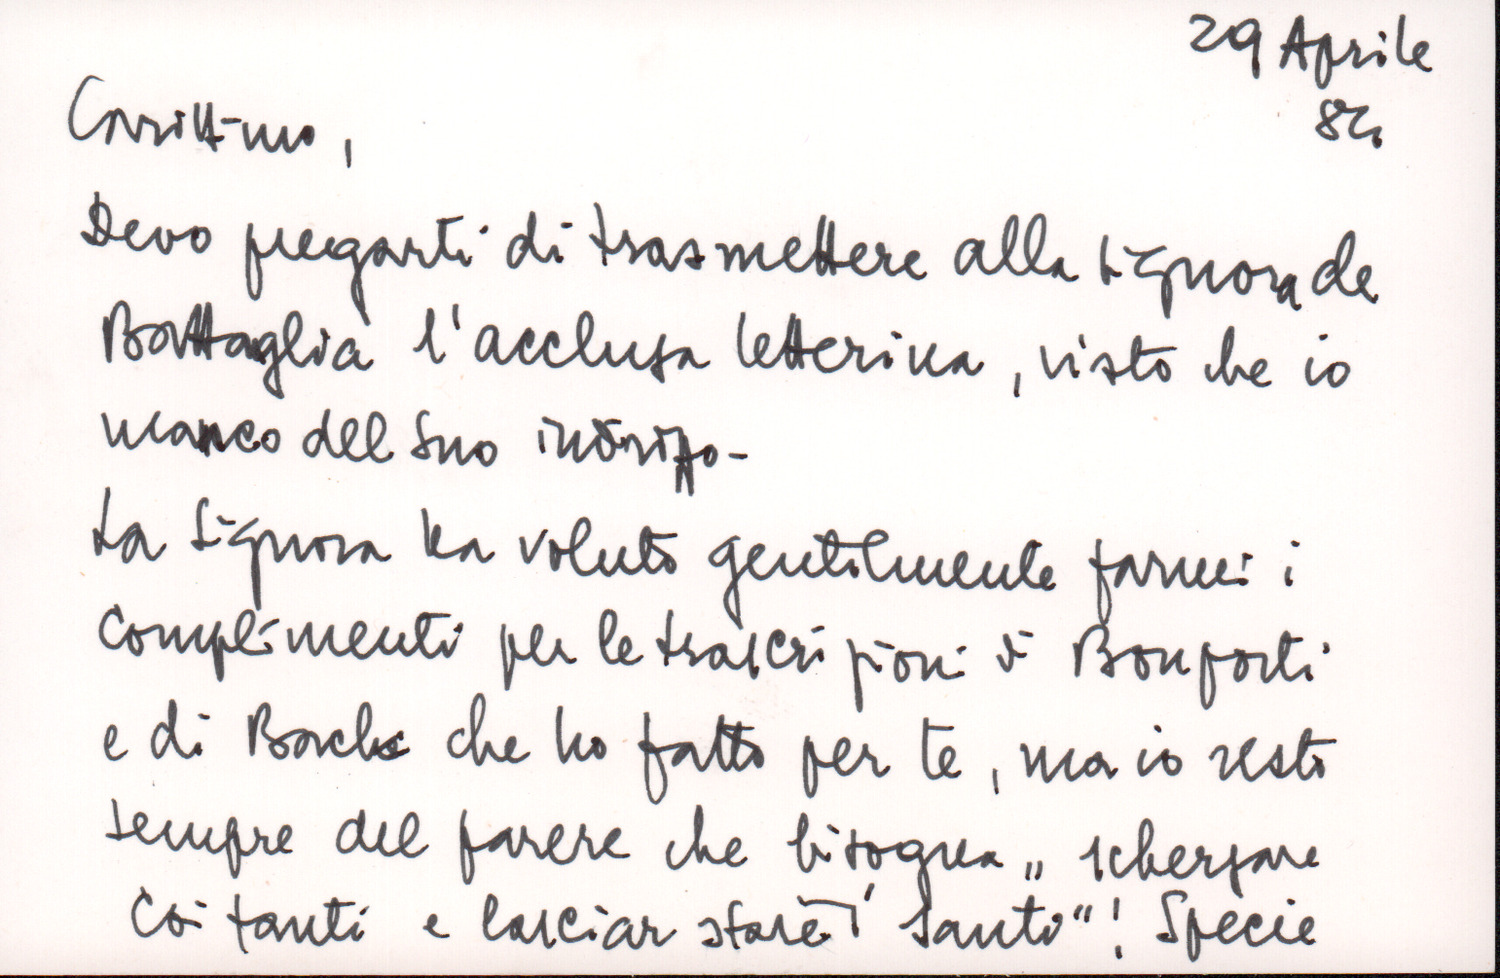 29 Aprile
82.
Carissimo,
Devo pregarti di trasmettere alla Signora de
Battaglia l'acclusa letterina, visto che io
manco del suo indirizzo-
La Signora ha voluto gentilmente farmi i
complimenti per le trascrizioni di Bonporti
e di Bach che ho fatto per te, ma io resto
sempre del parere che bisogna „scherzare
coi fanti e lasciar stare i Santi“! Specie